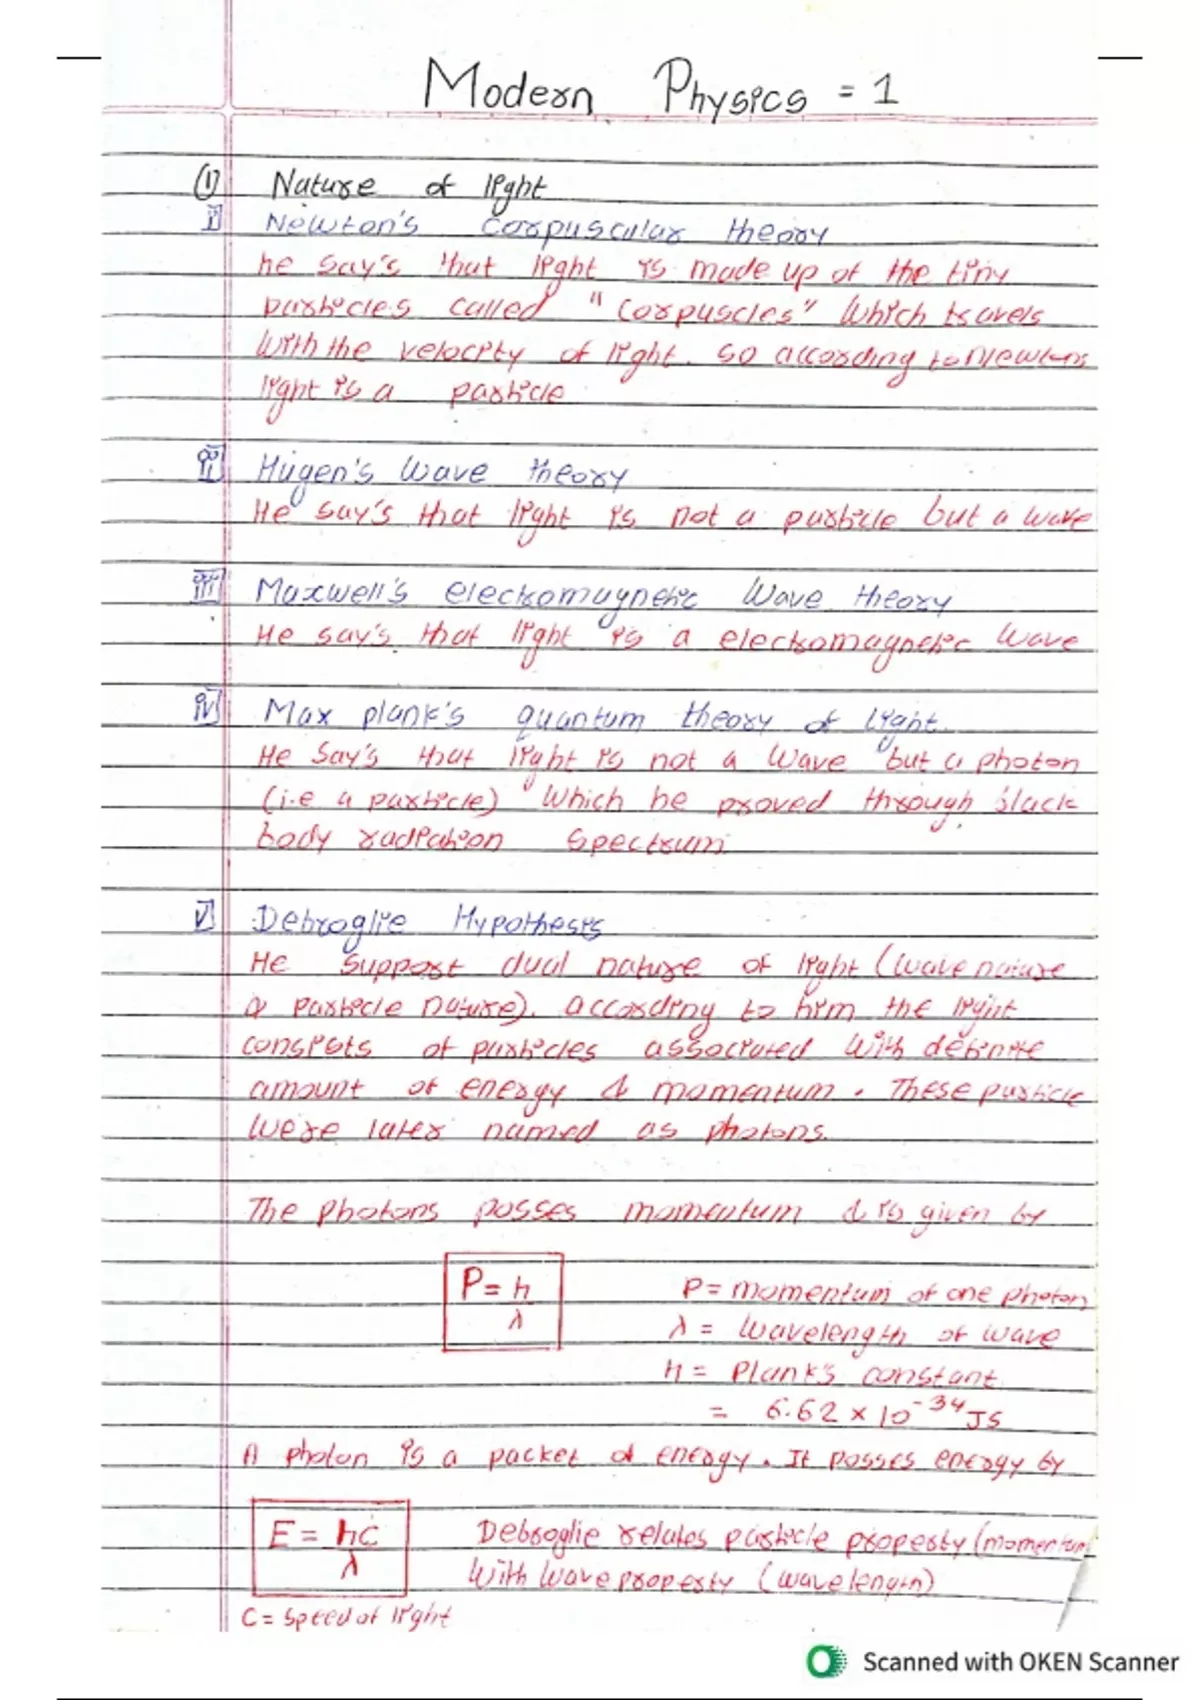 Modern Physics = 1
(1) Nature of light
i Newton's Corpuscular theory
he say's that light is made up of the tiny
particles called "corpuscles" which travels
with the velocity of light. so according to Newtons
light is a particle
ii Hugen's wave theory
He say's that light is not a particle but a wave
iii Maxwell's electromagnetic Wave theory
He say's that light is a electromagnetic wave
iv Max plank's quantum theory of light
He say's that light is not a wave but a photon
(i.e a particle) which he proved through black
body radiation spectrum.
v Debroglie Hypothesis
He support dual nature of light (wave nature
& particle nature). according to him the light
consists of particles associated with definite
amount of energy & momentum. These particle
were later named as photons.
The photons posses momentum & is given by
P = h/λ
P = momentum of one photon
λ = wavelength of wave
h = Plank's constant
= 6.62 × 10⁻³⁴ JS
A photon is a packet of energy. It posses energy by
E = hc/λ
Debroglie relates particle property (momentum)
with wave property (wavelength)
C = speed of light
Scanned with OKEN Scanner